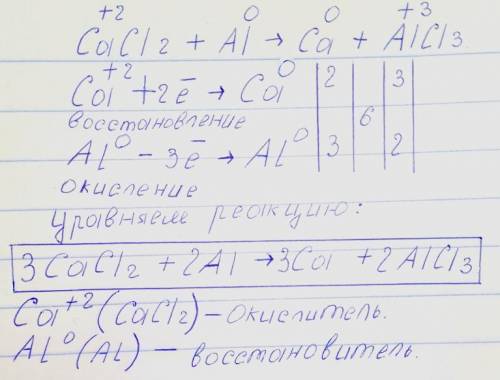 +2 0 0 +3
CaCl2 + Al → Ca + AlCl3
Ca+2 + 2e̅ → Ca0 | 2 | | 3 |
восстановление | | 6 | |
Al0 - 3e̅ → Al0 | 3 | | 2 |
окисление
Уравняем реакцию:
3CaCl2 + 2Al → 3Ca + 2AlCl3
Ca+2 (CaCl2) – окислитель.
Al0 (Al) – восстановитель.